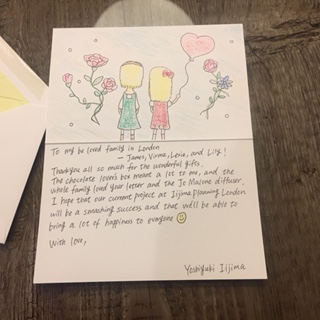 To my be loved family in London
— James, Vinma, Lerie, and Lily!
Thankyou all so much for the wonderful gifts.
The chocolate lovers box meant a lot to me, and the
whole family loved your letter and the Jo Malone diffuser.
I hope that our current project at Iijima Planning London
will be a smashing success and that we'll be able to
bring a lot of happiness to everyone
With love,
Yoshiyuki Iijima